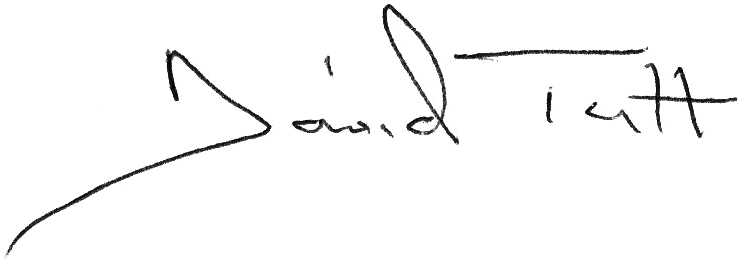 David Tutt